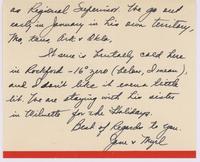 as Regional Supervisor. We go out
early in January in his own territory,
Mo, Kans, Ark & Okla.
It sure is brutally cold here
in Rockford - 16° zero (below, I mean),
and I don't like it even a little
bit. We are staying with his sister
in Wilmette for the Holidays.
Best of Regards to You.
Jane & Myrl